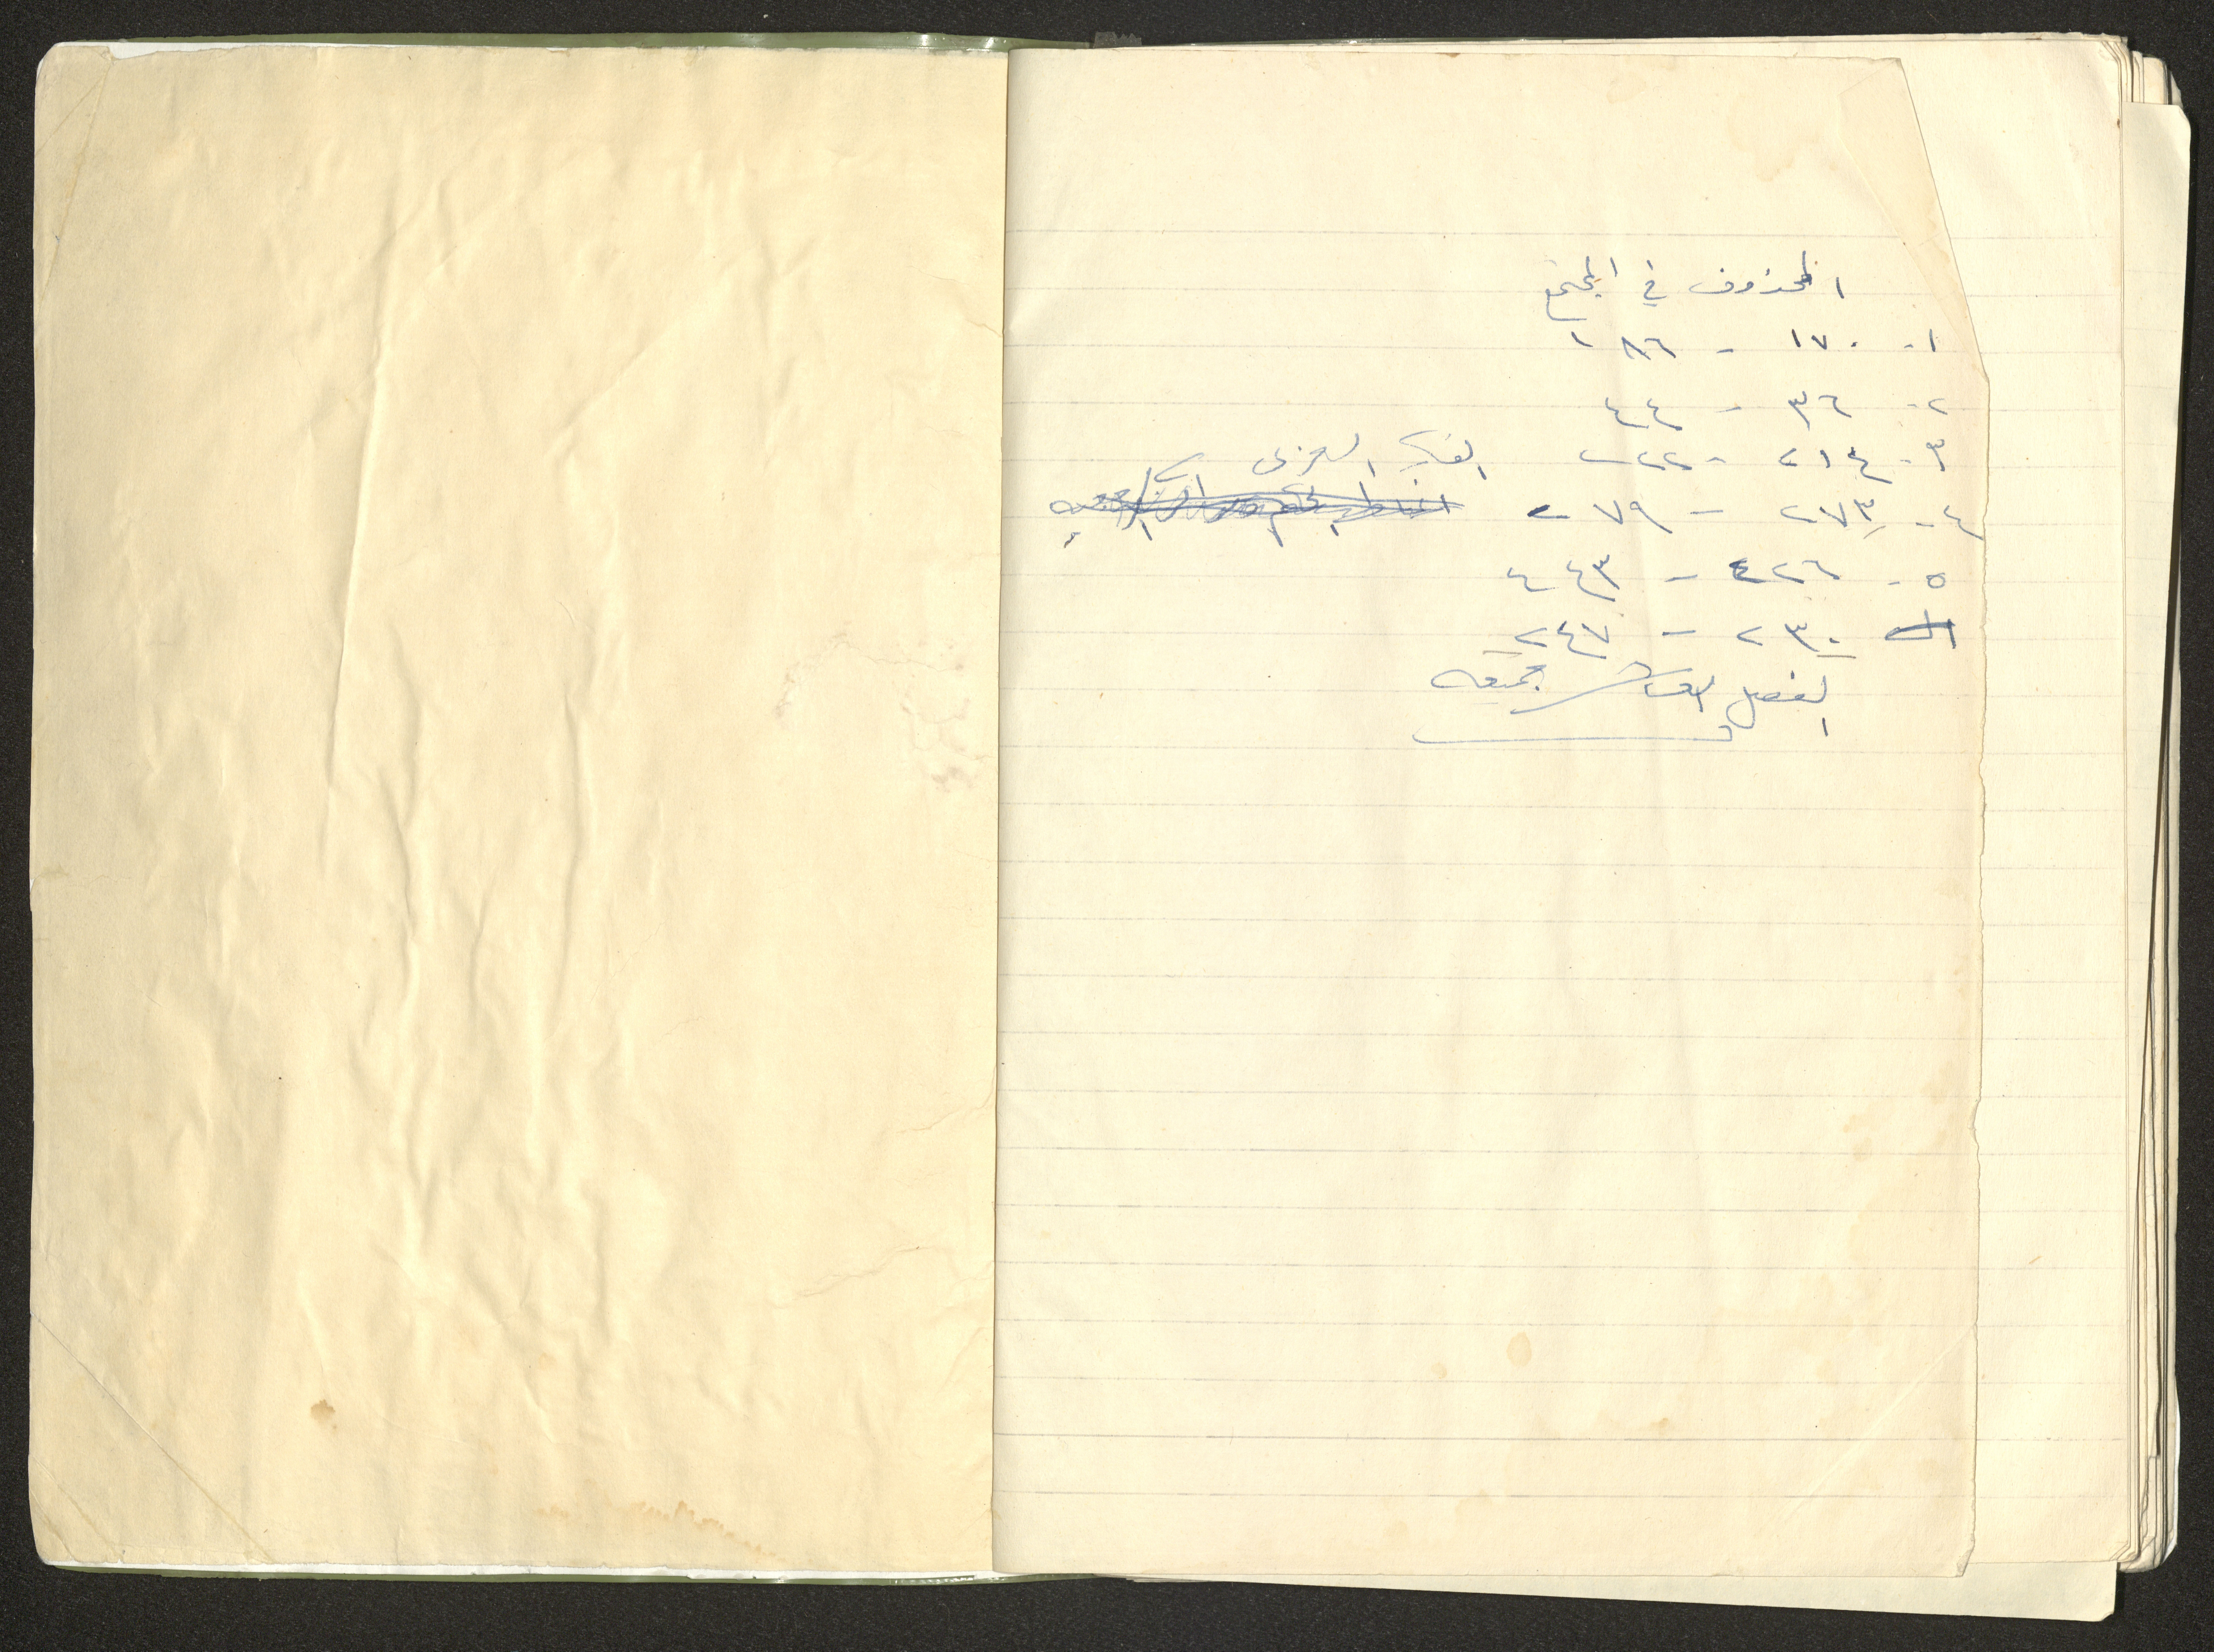 المحذوف في المجتمع
١- ١٧٠ - ١٨٦
٢- ٣٦ - ٤٤
٣- ٢١٤ - ٢٢٠ الفكر العربي
٤- ٢٧٣ - ٢٧٩
٥- ٤٢٦ - ٤٤٣
٢٣٠ - ٢٤٧
الفصل العاشر جميعه